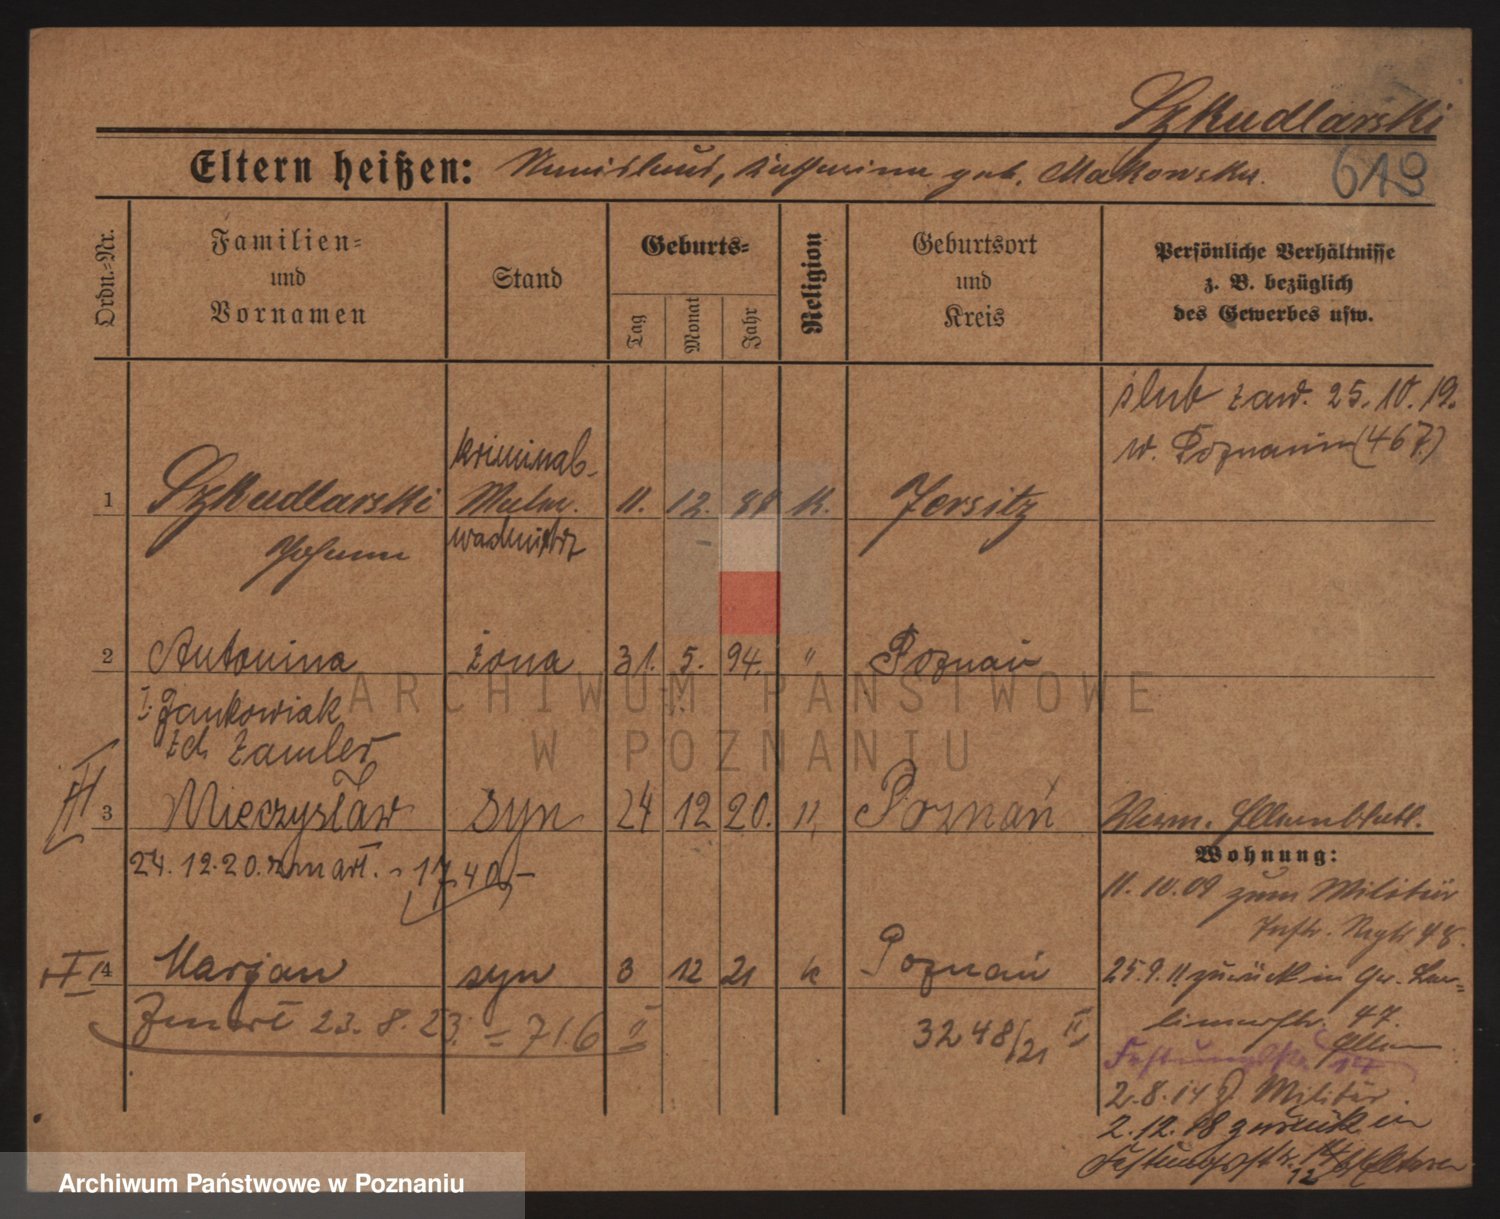 Szkudlarski
Eltern heißen: Stanislaus, Katharina geb. Makowska.
619
Ordn.-Nr.
Familien- und Vornamen
Stand
Geburts-
Tag
Monat
Jahr
Religion
Geburtsort und Kreis
Persönliche Verhältnisse
z. B. bezüglich
des Gewerbes usw.
ślub zaw. 25. 10. 19.
w. Poznaniu (467)
kriminal-
1 Szkudlarski 11. 12. 88 k. Jersitz
Johann
2 Antonina żona 31. 5. 94. " Poznań
I. Jankowiak
zd. Zamler
III
3 Mieczysław syn 24 12 20. " Poznań
Verm. Elternblatt.
24. 12. 20. zmarł. - 1740,-
Wohnung:
11. 10. 09 zum Militär
Inftr. Regt 48.
4 Marjan syn 3 12 21 k Poznań
25. 9. 11 zurück in
47.
Eltern
Zmarł 23. 8. 23. = 716 II
3248/21 II
Festungsstr. 14
2. 8. 14 z. Militär.
2. 12. 18 zurück in
Festungsstr. 14 b/Eltern
12
ARCHIWUM PAŃSTWOWE
W POZNANIU
Archiwum Państwowe w Poznaniu